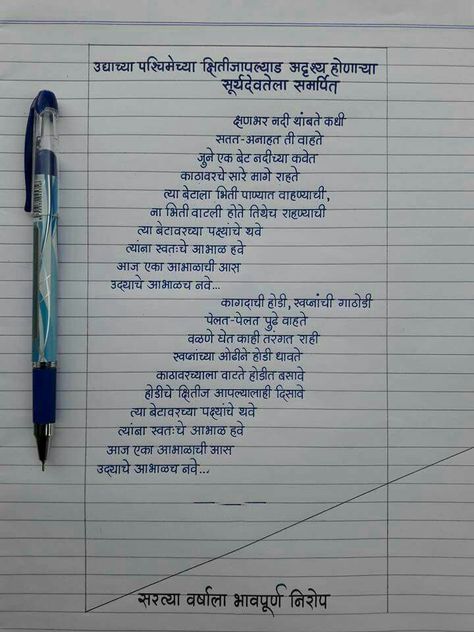 उद्याच्या पश्चिमेच्या क्षितीजापल्याड अदृश्य होणाऱ्या
सूर्यदेवतेला समर्पित
क्षणभर नदी थांबते कधी
सतत-अनाहत ती वाहते
जुने एक बेट नदीच्या कवेत
काठावरचे सारे मागे राहते
त्या बेटाला भिती पाण्यात वाहण्याची,
ना भिती वाटली होते तिथेच राहण्याची
त्या बेटावरच्या पक्ष्यांचे थवे
त्यांना स्वतःचे आभाळ हवे
आज एका आभाळाची आस
उद्याचे आभाळच नवे...
कागदाची होडी, स्वप्नांची गाठोडी
पेलत-पेलत पुढे वाहते
वळणे घेत काही तरगत राही
स्वप्नांच्या ओढीने होडी धावते
काठावरच्याला वाटते होडीत बसावे
होडीचे क्षितीज आपल्यालाही दिसावे
त्या बेटावरच्या पक्ष्यांचे थवे
त्यांना स्वतःचे आभाळ हवे
आज एका आभाळाची आस
उद्याचे आभाळच नवे...
सरत्या वर्षाला भावपूर्ण निरोप